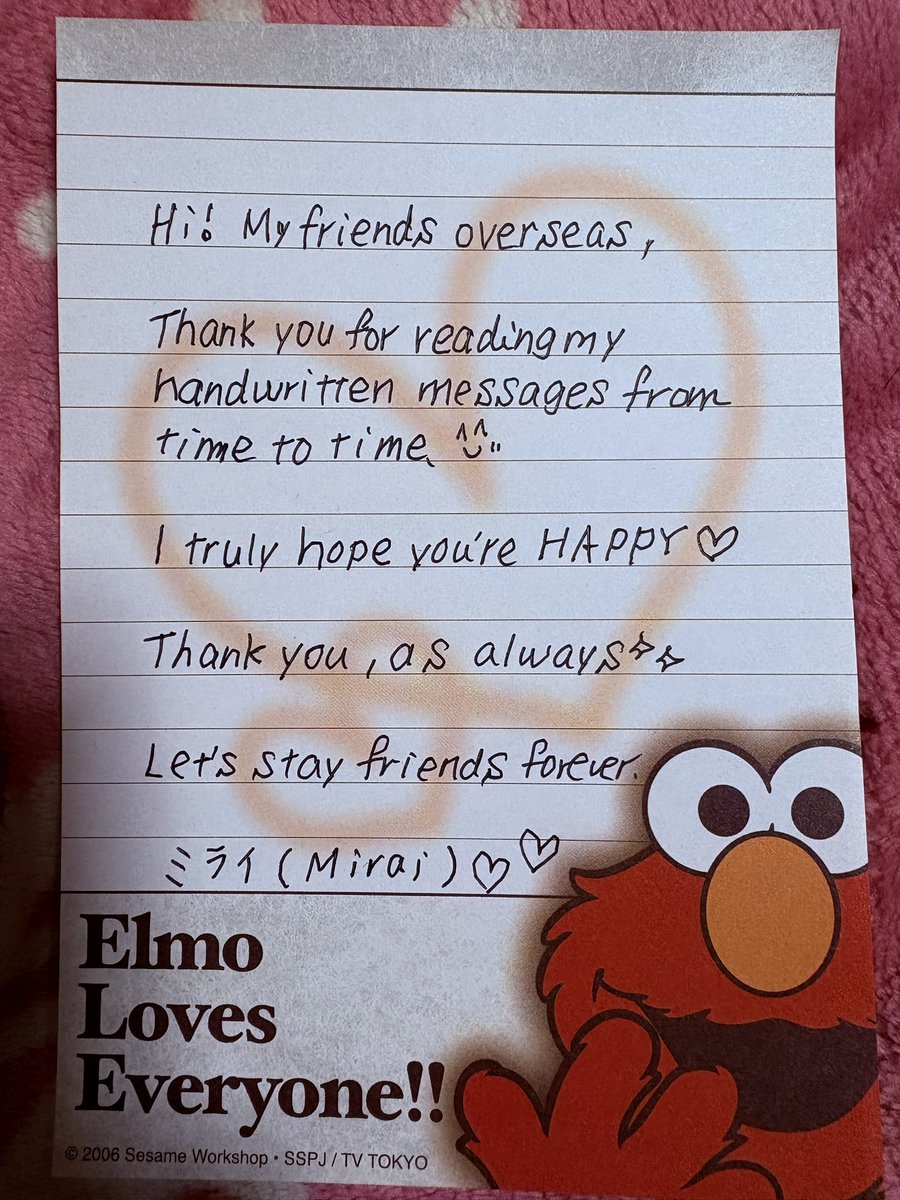 Hi! My friends overseas,
Thank you for reading my
handwritten messages from
time to time.
I truly hope you're HAPPY♡
Thank you, as always✧✧
Let's stay friends forever.
ミライ(Mirai)♡♡
Elmo
Loves
Everyone!!
© 2006 Sesame Workshop・SSPJ / TV TOKYO